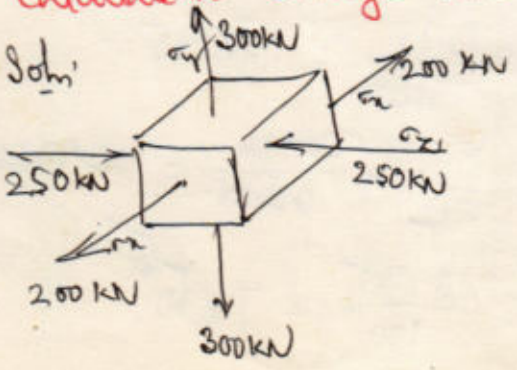 300KN
σy
Soln:
200 KN
σx
σz
250KN
250KN
σx
200 KN
300KN